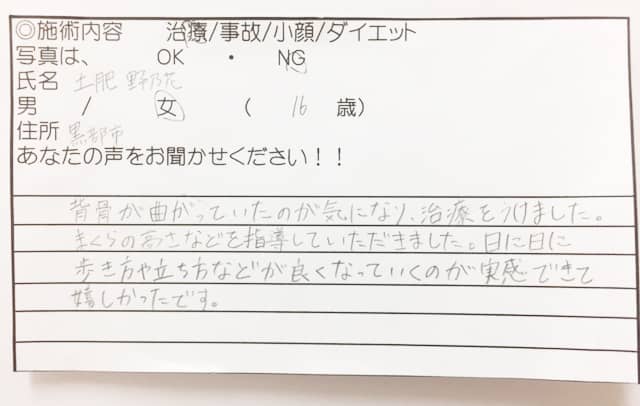 ◎施術内容 治療/事故/小顔/ダイエット
写真は、 OK ・ NG
氏名 土肥 野乃花
男 / 女 ( 16 歳)
住所 黒部市
あなたの声をお聞かせください!!
背骨が曲がっていたのが気になり、治療をうけました。
まくらの高さなどを指導していただきました。日に日に
歩き方や立ち方などが良くなっていくのが実感できて
嬉しかったです。